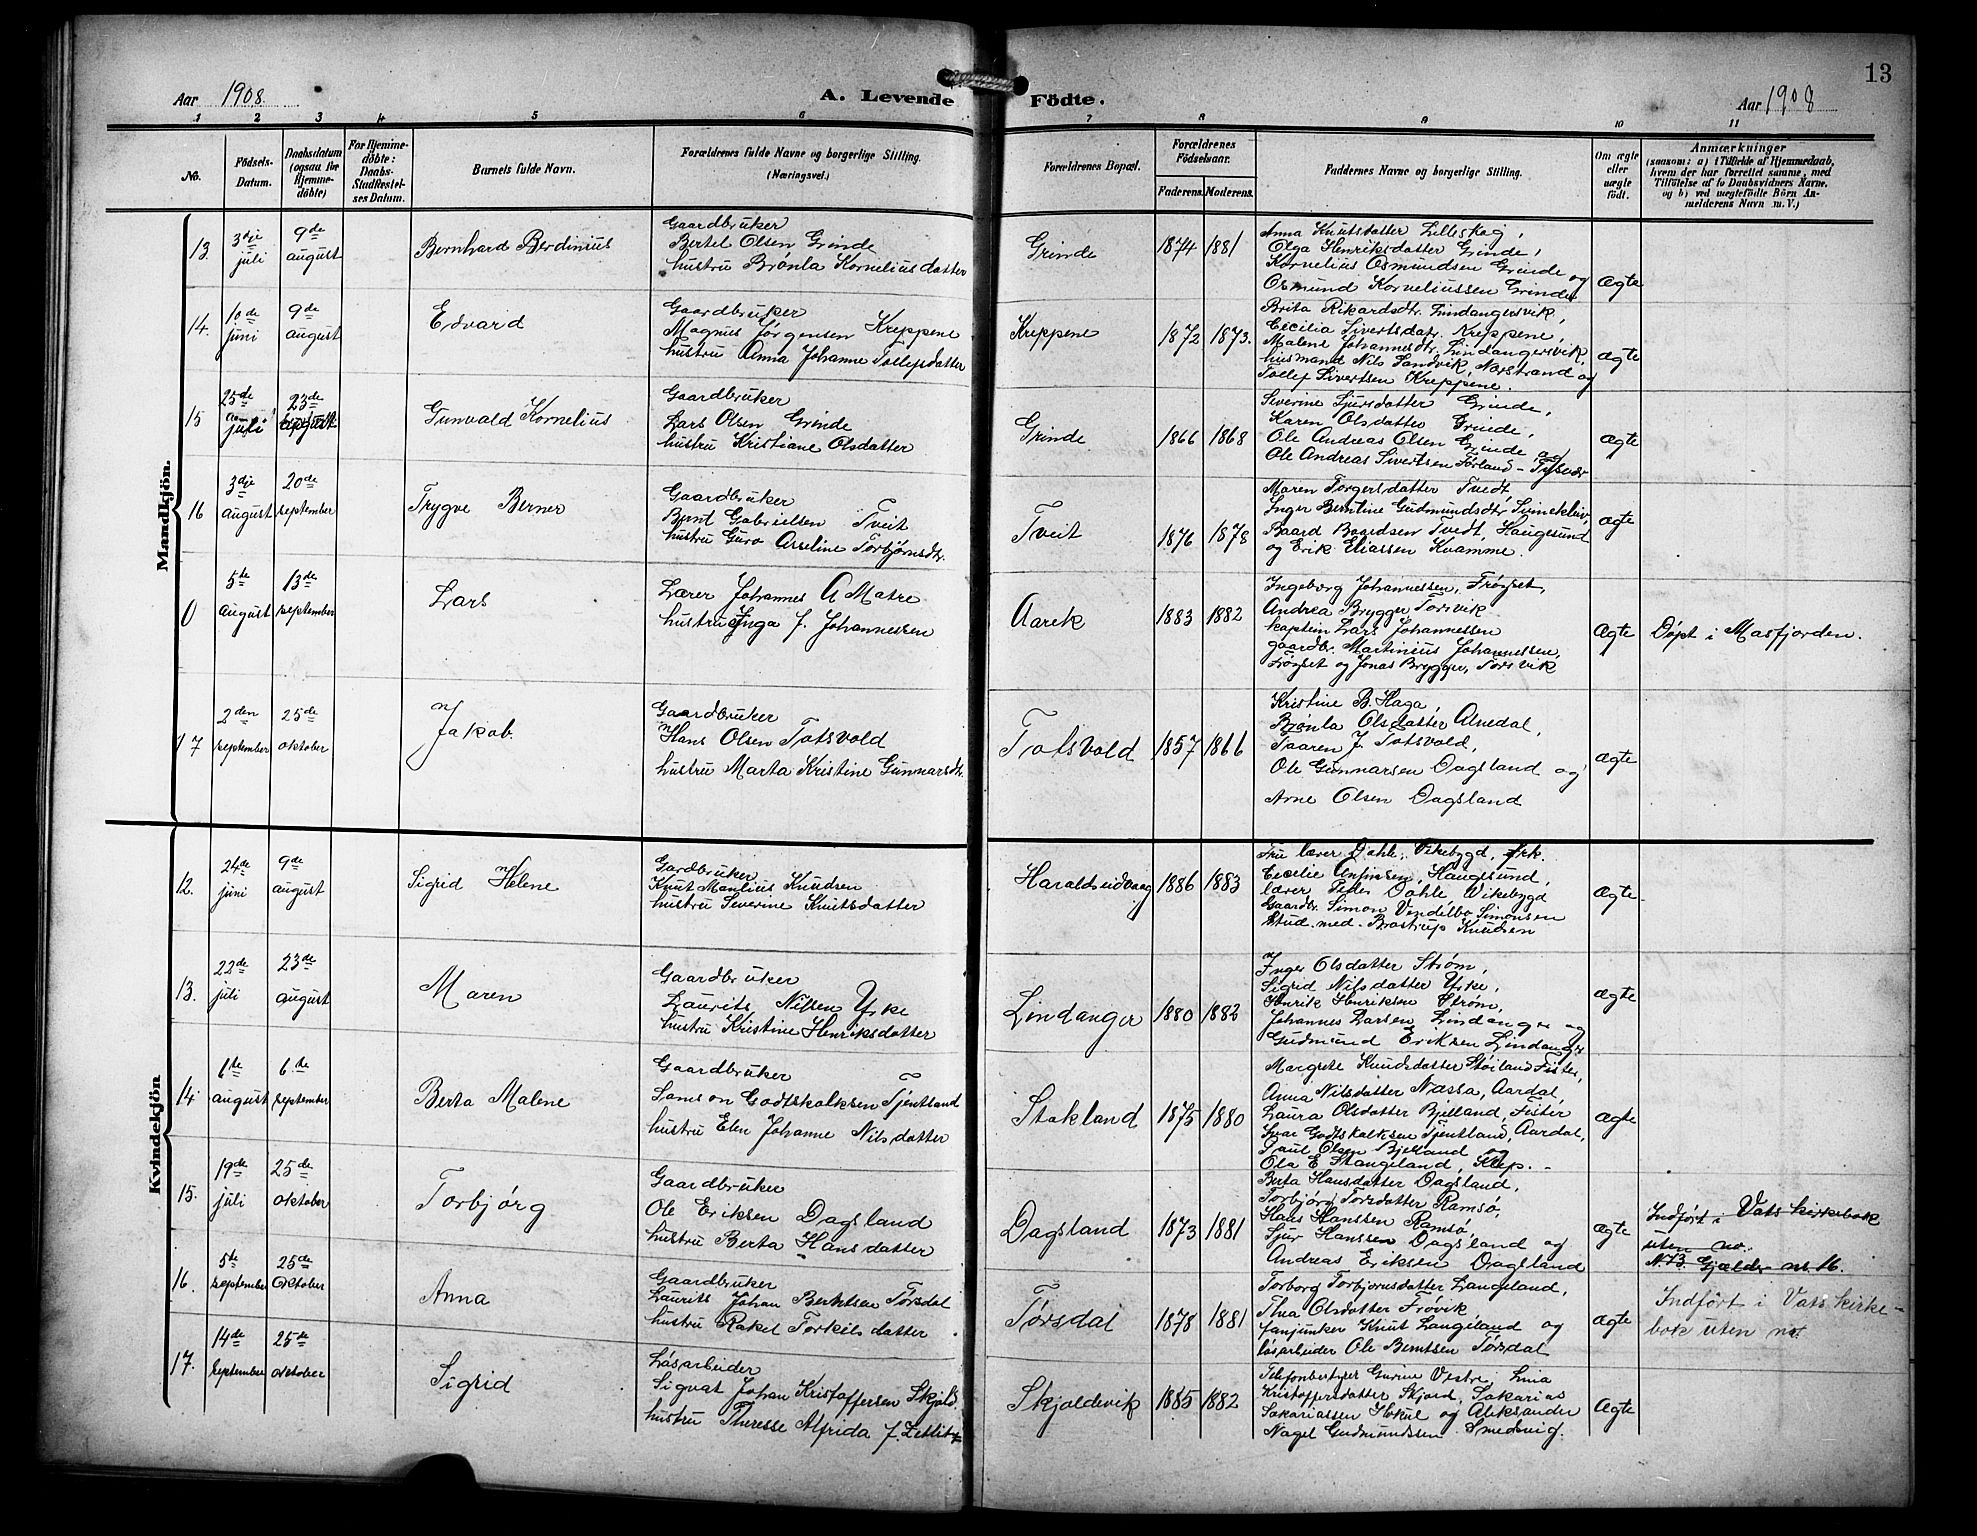 13
Aar 1908 A. Levende Födte. Aar 1908
1 2 3 4 5 6 7 8 9 10 11
No.
Födsels-
Datum.
Daabsdatum
(ogsaa for
Hjemme-
döbte)
For Hjemme-
döbte:
Daabs-
Stadfæstel-
ses Datum.
Barnets fulde Navn.
Forældrenes fulde Navne og borgerlige Stilling.
(Næringsvei.)
Forældrenes Bopæl.
Forældrenes
Födselsaar.
Faderens. Moderens.
Faddernes Navne og borgerlige Stilling.
Om ægte
eller
uægte
födt.
Anmærkninger
(saasom: a) i Tilfælde af Hjemmedaab,
hvem der har forrettet samme, med
Tilföielse af to Daabsvidners Navne,
og b) ved uægtefödte Börn An-
melderens Navn m. V.)
Mandkjön.
13.
3dje
juli
9de
august
Bernhard Berdinius
Gaardbruker
Bertel Olsen Grinde
hustru Brønla Korneliusdatter
Grinde
1874 1881
Anna Knutsdatter Lilleskog,
Olga Henriksdatter Grinde,
Kornelius Osmundsen Grinde og
Osmund Korneliussen Grinde
Ægte
14.
10de
juni
9de
august
Edvard
Gaardbruker
Magnus Jørgensen Kreppene
hustru Anna Johanne Tollefsdatter
Kreppene
1872 1873.
Brita Rikardsdtr. Lindangersvik,
Cecilia Sivertsdatr. Kreppene,
Malene Johannesdtr. Lindangersvik,
husmand Nils Sandvik, Nørstrand og
Tollef Sivertsen Kreppene.
Ægte
15
25de
juli
23de
august
Gunvald Kornelius
Gaardbruker
Lars Olsen Grinde
hustru Kristiane Olsdatter
Grinde
1866 1868
Severine Sjursdatter Grinde,
Karen Olsdatter Grinde,
Ole Andreas Olsen Grinde og
Ole Andreas Sivertsen Førland - Tysvær
Ægte
16
3dje
august
20de
september
Trygve Berner
Gaardbruker
Bernt Gabrielsen Tveit
hustru Guro Asseline Torbjørnsdtr.
Tveit
1876 1878
Maren Torgersdatter Tvedt,
Inger Berntine Gudmundsdtr
Baard Baardsen Tvedt, Haugesund
og Erik Eliassen Kvamme.
Ægte
0
5te
august
13de
september
Lars
Lærer Johannes A Matre
hustru Inga J. Johannessen
Aarek
1883 1882
Ingeborg Johannessen, Frøyset,
Andrea Brygger Torsvik
kaptein Lars Johannessen
gaardbr. Martinius Johannessen,
Frøyset og Jonas Brygger, Torsvik
Ægte
Døpt i Masfjorden.
17
2den
september
25de
oktober
Jakob
Gaardbruker
Hans Olsen Totsvold
hustru Marta Kristine Gunnarsdtr.
Totsvold
1857 1866
Kristine B. Haga,
Brønla Olsdatter Alnedal,
Taaren J. Totsvold,
Ole Gunnarsen Dagsland og
Arne Olsen Dagsland
Ægte
Kvindekjön
12.
24de
juni
9de
august
Sigrid Helene
Gardbruker
Knut Manlius Knudsen
hustru Severine Knutsdatter
Haraldseidvaag
1886 1883
Fru lærer Dahle, Vikebygd, frk.
Cecilie Anfinsen, Haugesund,
lærer Peder Dahle Vikebygd
Gaardbr. Simon Vendelbo Simonsen
Stud. med. Brostrup Knudsen
Ægte
13.
22de
juli
23de
august
Maren
Gaardbruker
Laurits Nilsen Yrke
hustru Kristine Henriksdatter
Lindanger
1880 1882
Inger Olsdatter Strøm,
Sigrid Nilsdatter Yrke,
Henrik Henriksen Strøm,
Johannes Larsen Lindanger og
Gudmund Eriksen Lindanger
Ægte
14
6te
august
6te
september
Berta Malene
Gaardbruker
Samson Godtskalksen Tjentland
hustru Elen Johanne Nilsdatter
Stakland
1875 1880
Margrete Knudsdatter Støiland Fister,
Anna Nilsdatter Næssa, Aardal,
Laura Olsdatter Bjelland, Fister
Ivar Godtskalksen Tjentland, Aardal,
Paul Olsen Bjelland og
Ola E Stangeland, Klep.
Ægte
15.
19de
juli
25de
oktober
Torbjørg
Gaardbruker
Ole Eriksen Dagsland
hustru Berta Hansdatter
Dagsland
1873 1881
Berta Hansdatter Dagsland,
Torbjørg Torsdatter Ramsø,
Hans Hanssen Ramsø,
Sjur Hanssen Dagsland og
Andreas Eriksen Dagsland
Ægte
Indført i Vats kirkebok
uten no.
N.B. Gjælder nr. 16.
16.
5te
september
25de
Oktober
Anna
Gaardbruker
Laurits Johan Berntsen Tørsdal
hustru Rakel Torkilsdatter
Tørsdal
1878 1881
Torborg Torbjørnsdatter Langeland,
Thea Olsdatter Frøvik
fanjunker Knut Langeland og
løsarbeider Ole Berntsen Tørsdal
Ægte
Indført i Vats kirke-
bok uten nr.
17.
14de
september
25de
oktober
Sigrid
Løsarbeider
Sigvat Johan Kristoffersen Skjold,
hustru Therese Alfrida J. Zetlitz
Skjoldevik
1885 1882
Telefonbestyrer Gurine Vestre, Lina
Kristoffersdatter Skjold, Sakarias
Sakariassen Økul og Aleksander
Nagel Gudmundssen Smedsvig.
Ægte